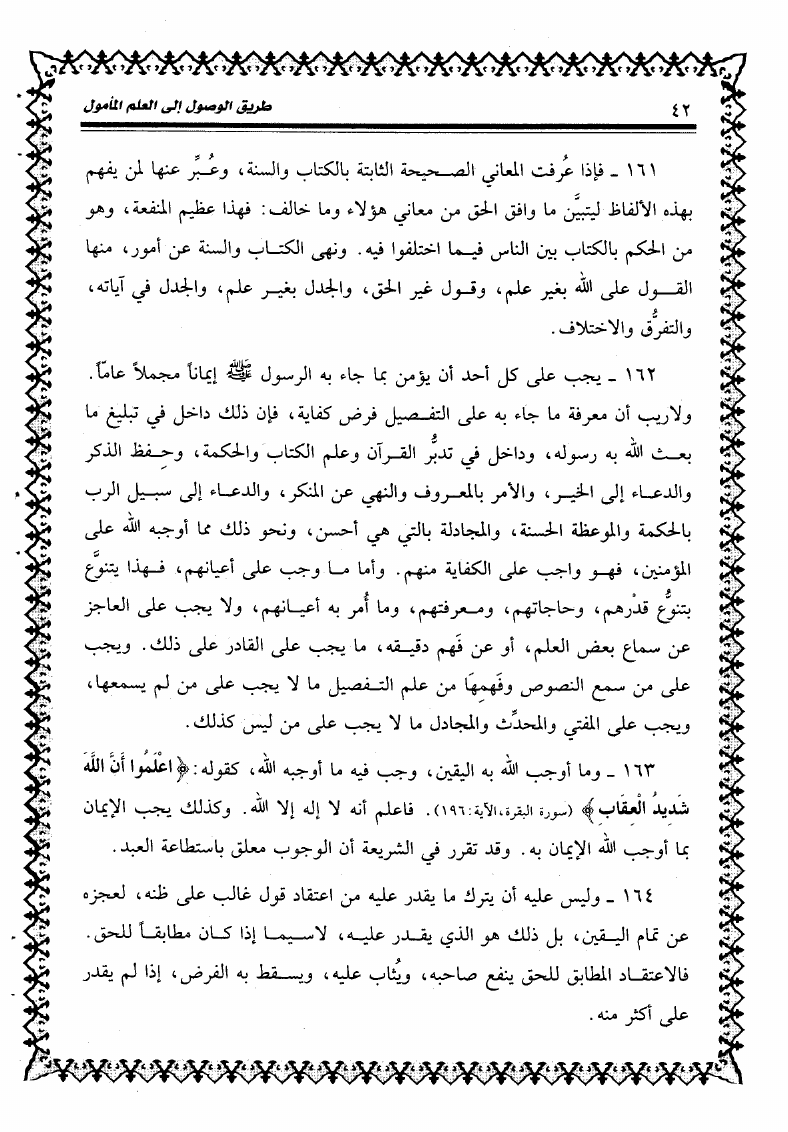 ٤٢ طريق الوصول إلى العلم المأمول
١٦١ ـ فإذا عُرفت المعاني الصحيحة الثابتة بالكتاب والسنة، وعُبِّر عنها لمن يفهم
بهذه الألفاظ ليتبيَّن ما وافق الحق من معاني هؤلاء وما خالف: فهذا عظيم المنفعة، وهو
من الحكم بالكتاب بين الناس فيما اختلفوا فيه. ونهى الكتاب والسنة عن أمور، منها
القول على الله بغير علم، وقول غير الحق، والجدل بغير علم، والجدل في آياته،
والتفرُّق والاختلاف.
١٦٢ ـ يجب على كل أحد أن يؤمن بما جاء به الرسول ﷺ إيماناً مجملاً عامّاً.
ولاريب أن معرفة ما جاء به على التفصيل فرض كفاية، فإن ذلك داخل في تبليغ ما
بعث الله به رسوله، وداخل في تدبُّر القرآن وعلم الكتاب والحكمة، وحِفظ الذكر
والدعاء إلى الخير، والأمر بالمعروف والنهي عن المنكر، والدعاء إلى سبيل الرب
بالحكمة والموعظة الحسنة، والمجادلة بالتي هي أحسن، ونحو ذلك مما أوجبه الله على
المؤمنين، فهو واجب على الكفاية منهم. وأما ما وجب على أعيانهم، فهذا يتنوَّع
بتنوُّع قدْرهم، وحاجاتهم، ومعرفتهم، وما أُمر به أعيانهم، ولا يجب على العاجز
عن سماع بعض العلم، أو عن فَهم دقيقه، ما يجب على القادر على ذلك. ويجب
على من سمع النصوص وفَهِمهَا من علم التفصيل ما لا يجب على من لم يسمعها،
ويجب على المفتي والمحدِّث والمجادل ما لا يجب على من ليس كذلك.
١٦٣ ـ وما أوجب الله به اليقين، وجب فيه ما أوجبه الله، كقوله: ﴿اعْلَمُوا أَنَّ اللَّهَ
شَدِيدُ الْعِقَابِ﴾ (سورة البقرة، الآية: ١٩٦). فاعلم أنه لا إله إلا الله. وكذلك يجب الإيمان
بما أوجب الله الإيمان به. وقد تقرر في الشريعة أن الوجوب معلق باستطاعة العبد.
١٦٤ ـ وليس عليه أن يترك ما يقدر عليه من اعتقاد قول غالب على ظنه، لعجزه
عن تمام اليقين، بل ذلك هو الذي يقدر عليه، لاسيما إذا كان مطابقاً للحق.
فالاعتقاد المطابق للحق ينفع صاحبه، ويُثاب عليه، ويسقط به الفرض، إذا لم يقدر
على أكثر منه.